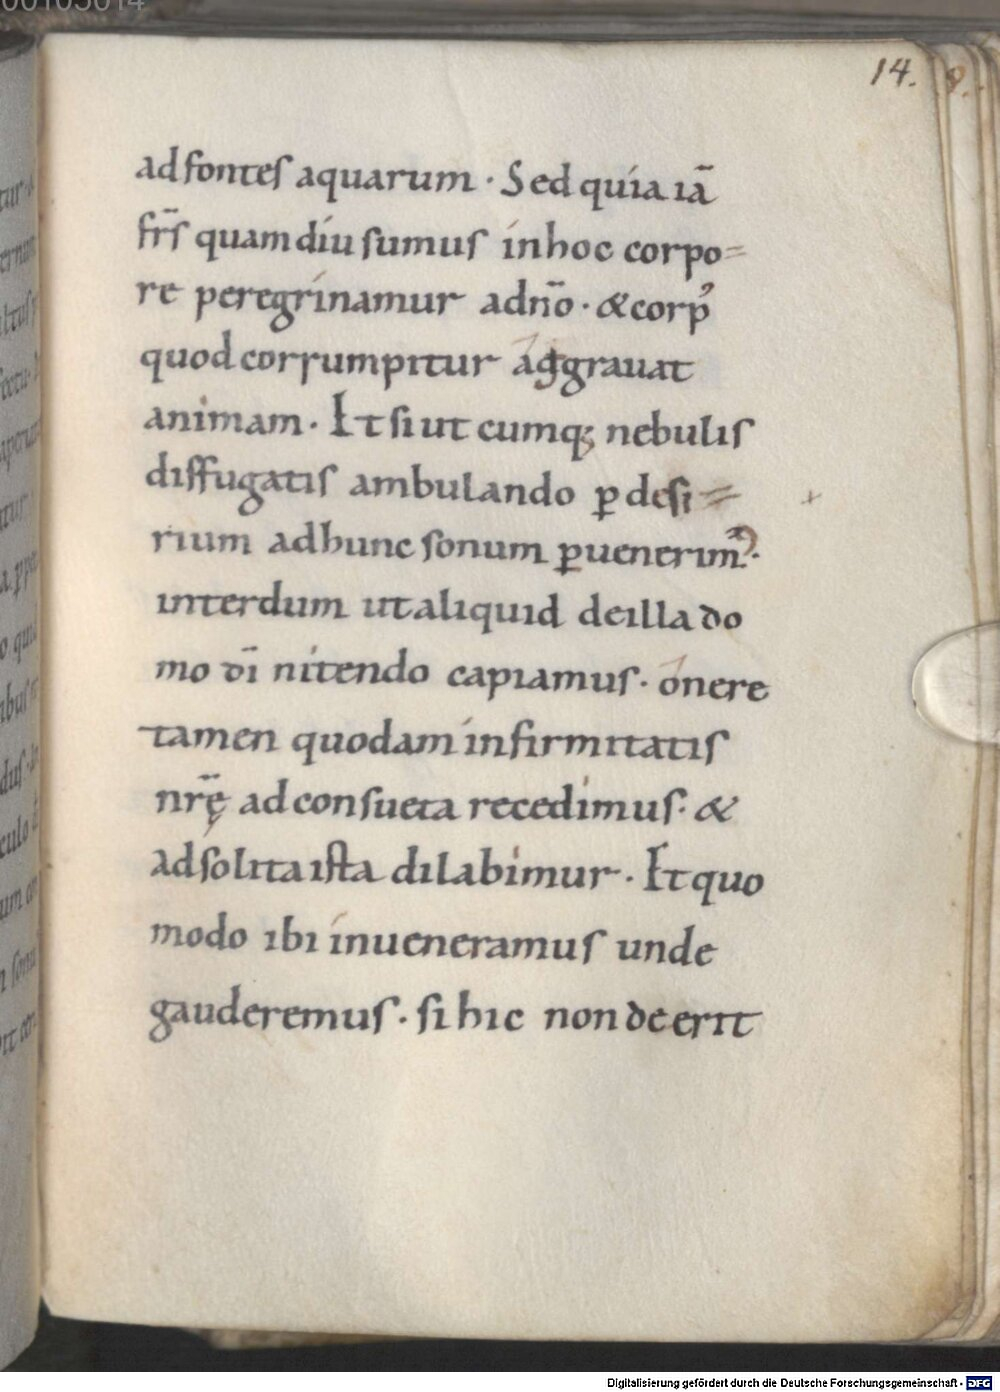 14.
ad fontes aquarum · Sed quia iā
fr̄s quam diu sumus in hoc corpo=
re peregrinamur ad no̅ · & corp᾽
quod corrumpitur aggrauat
animam · Et si ut cumq; nebulis
diffugatis ambulando ꝑ desi=
rium ad hunc sonum ꝑuenerim᾽ ·
interdum ut aliquid de illa do
mo dı̅ nitendo capiamus · onere
tamen quodam infirmitatis
nr̄ę ad consueta recedimus · &
ad solita ista dilabimur · Et quo
modo ibi inueneramus unde
gauderemus · si hic non deerit
Digitalisierung gefördert durch die Deutsche Forschungsgemeinschaft - DFG